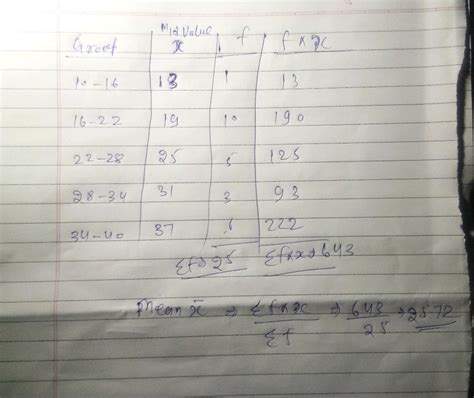 Mid Value
Group x f f × x
10-16 13 1 13
16-22 19 10 190
22-28 25 5 125
28-34 31 3 93
34-40 37 6 222
Σf ⇒ 25 Σf×x ⇒ 643
Mean x̄ ⇒ Σf×x ⇒ 643 ⇒ 25.72
Σf 25